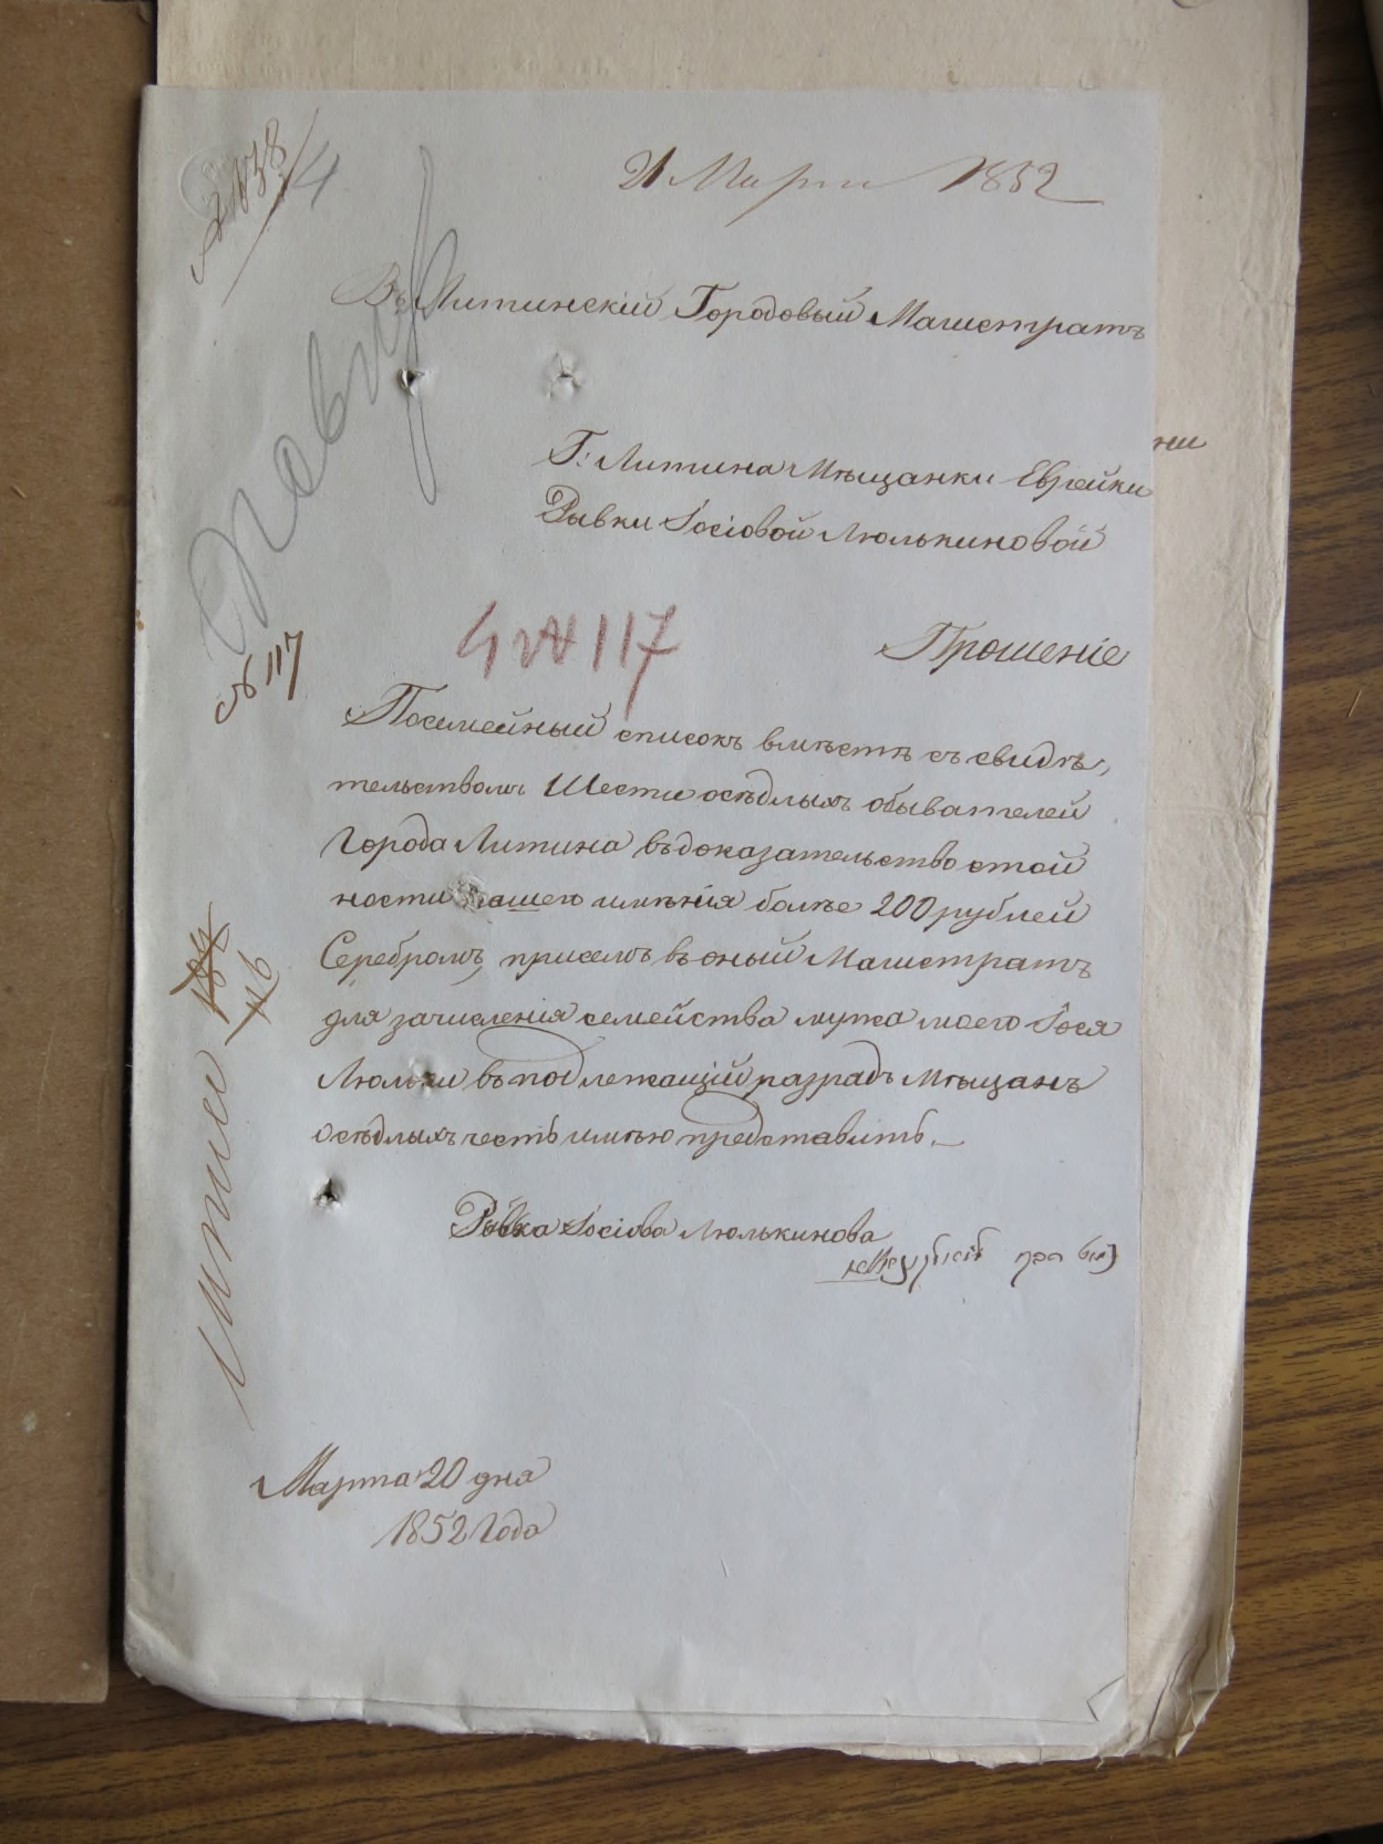 № 2138
4
21 Марта 1852
Въ Литинскій Городовый Магистратъ
Г: Литина Мѣщанки Еврейки
Рывки Іосіовой Люлькиновой
117
№ 117
Прошеніе
Посемейный списокъ вмѣстѣ съ свидѣ,
тельствомъ Шести осѣдлыхъ обывателей
Города Литина въ доказательство стой
ности нашего имѣнія болѣе 200 рублей
Серебромъ, присемъ въ оный Магистратъ
для зачисленія семейства мужа моего Іося
Люльки въ подлежащій разрядъ Мѣщанъ
осѣдлыхъ честь имѣю представить.
Рывка Іосіова Люлькинова
116
Марта 20 дня
1852 Года